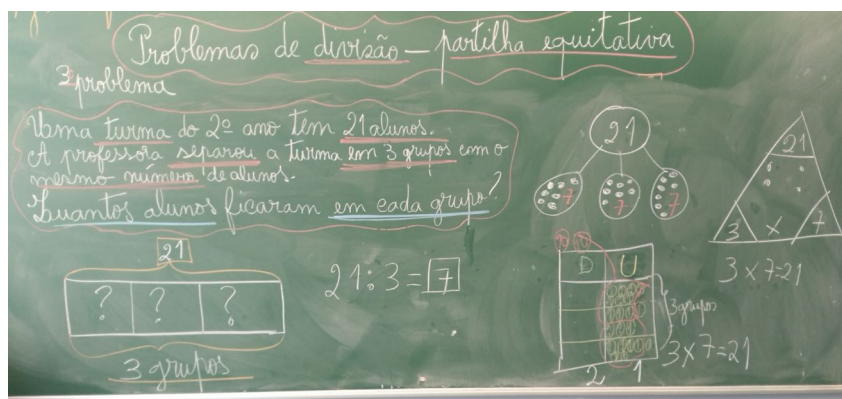 Problemas de divisão — partilha equitativa
3º problema
Uma turma do 2º ano tem 21 alunos.
A professora separou a turma em 3 grupos com o
mesmo número de alunos.
Quantos alunos ficaram em cada grupo?
21
? ? ?
3 grupos
21:3=7
21
7 7 7
10 10
D U
3 grupos
2 1
3x7=21
21
3 x 7
3x7=21